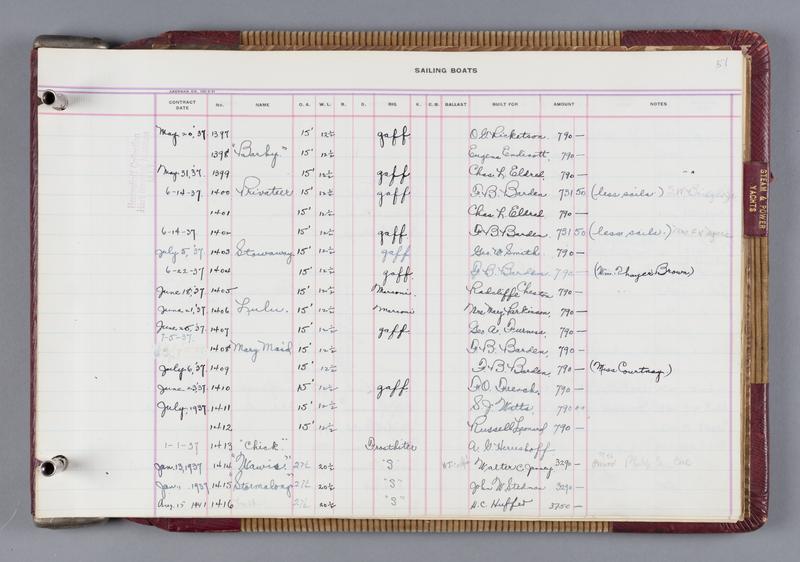 51
SAILING BOATS
CONTRACT DATE No. NAME O. A. W. L. B. D. RIG K. C. B. BALLAST BUILT FOR AMOUNT NOTES
May 20, '37. 1397 15' 12½ gaff O. G. Ricketson. 790 —
1398 "Barby." 15' 12½ Eugene Endicott, 790 —
May 31, 37. 1399 15' 12½ gaff Chas. L. Eldred, 790 — "
6-14-37. 1400 Privateer 15' 12½ gaff F. B. Barden 731 50 (less sails.)
1401 15' 12½ Chas. L. Eldred 790 —
6-14-37. 1402 15' 12½ gaff F. B. Barden, 731 50 (less sails.)
July 5, '37. 1403 Stowaway 15' 12½ gaff Geo. W. Smith. 790 —
6-22-37 1404 15' 12½ gaff. F. B. Barden. 790 — (Wm. Thayer Brown)
June 18, '37 1405 15' 12½ Marconi. Radcliffe Cheston 790 —
June 21, '37 1406 Lulu. 15' 12½ Marconi Mrs. Mary Parkinson, 790 —
June 25, '37 1407 15' 12½ gaff Geo. A. Furness, 790 —
7-5-37. 1408 Mary Maid 15' 12½ F. B. Barden, 790 —
July 6, '37 1409 15' 12½ F. B. Barden, 790 — (Miss Courtnay)
June 23, '37 1410 15' 12½ gaff A. O. French, 790 —
July, 1937 1411 15' 12½ S. J. Watts, 790 00
1412 15' 12½ Russell Leonard 790 —
1-1-37 1413 "Chick" Frostbiter A. G. Herreshoff
Jan. 13, 1937 1414 "Mavis." 20½ "S" Walter C. 3290 —
Jan. 1937 1415 "Stormalong" 27½ 20½ "S" John W. Stedman 3290 —
Aug. 15 1941 1416 27½ 20½ "S" H. C. Huffer 3750 —
STEAM & POWER
YACHTS